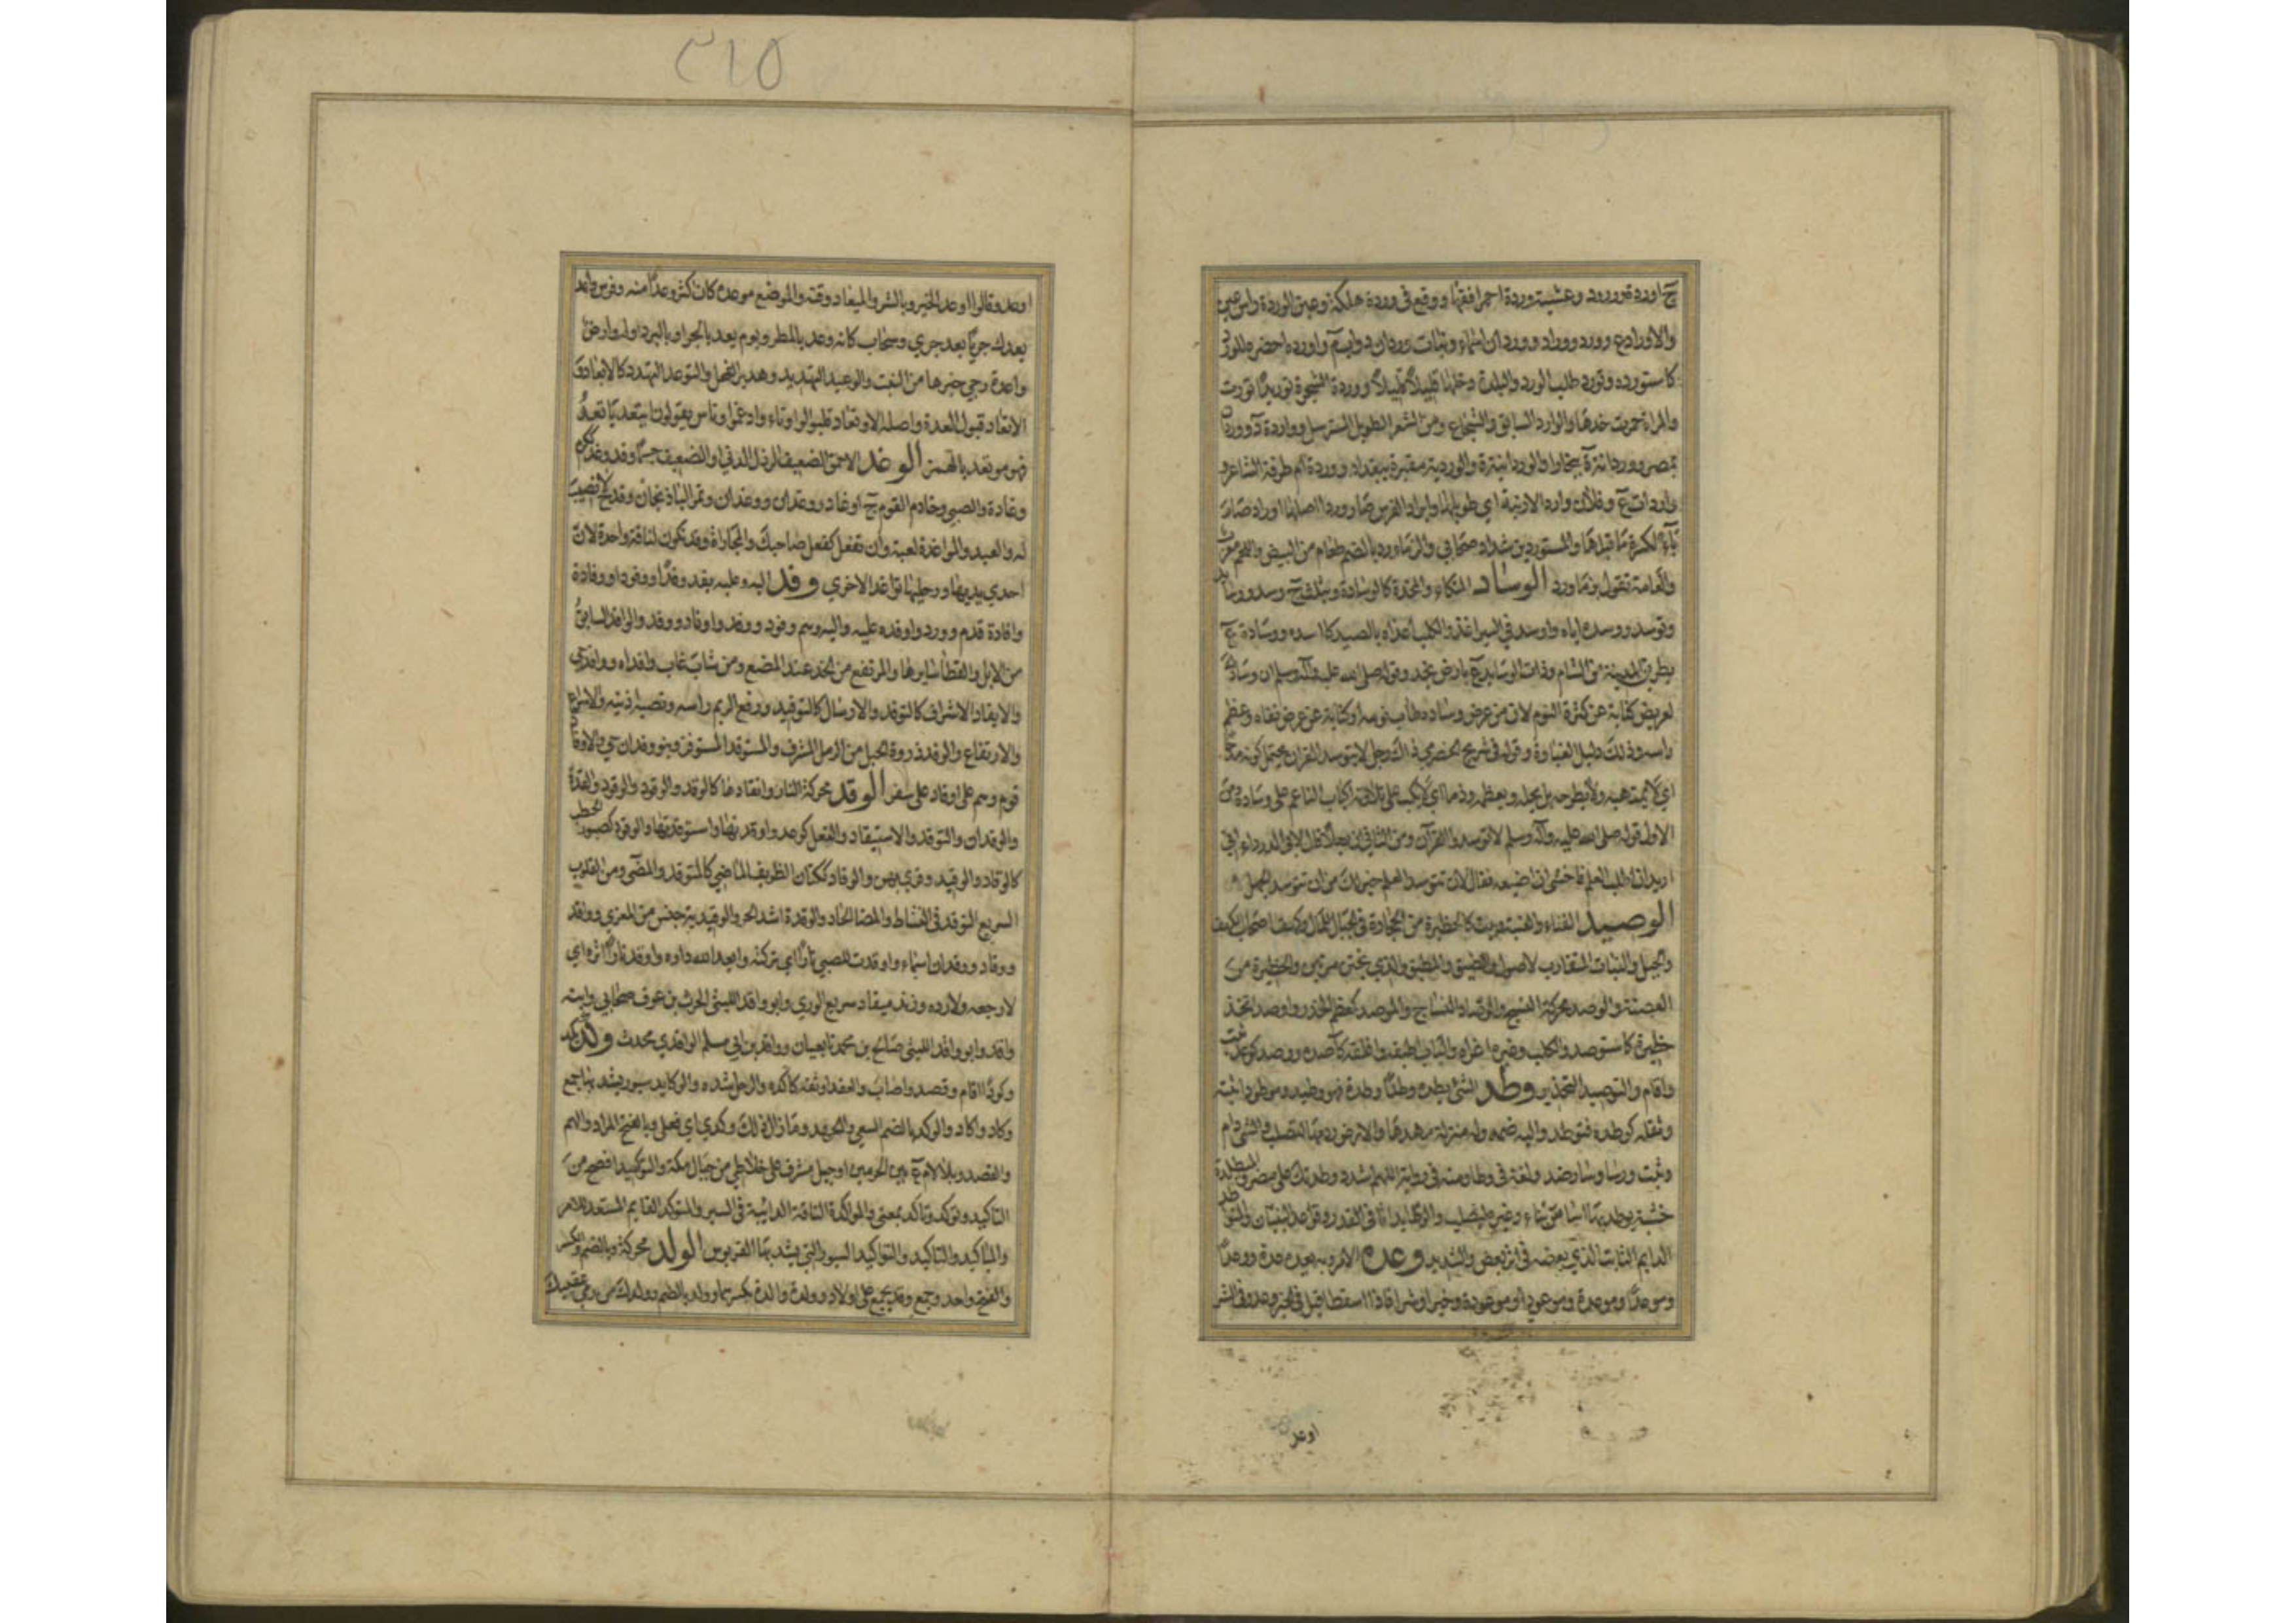 ج اوردة وورود وعشية وردة احمر افقها ووقع في وردة هلكة وعين الوردة راس عين
والاوراد ع وورد ووراد ووردان اسماء وبنات وردان دواب م واورده احضره المورد
كاستورده وتورد طلب الورد والبلدة دخلها قليلا قليلا ووردة الشجرة توريدا نورت
والمراة حمرت خدها والوارد السابق والشجاع ومن الشعر الطويل المسترسل وواردة د ووردان
بمصر ووردانة ة ببخارا والوردانية ة والوردية مقبرة ببغداد ووردة ام طرفة الشاعر و
واردات ع وفلان وارد الارنبة اي طويلها وايراد الفرس صار وردا اصلها اوراد صارت
ياء لكسرة ما قبلها والمستورد بن شداد صحابي والزماورد بالضم طعام من البيض واللحم معرب
والعامة تقول بزماورد الوساد المتكاء والمخدة كالوسادة ويثلث ج وسد ووسايد
وتوسد ووسده اياه واوسد في السير اغذ والكلب اغراه بالصيد كاسده ووسادة ع
بطريق المدينة من الشام وذات الوسايد ع بارض نجد وقوله صلى الله عليه وآله وسلم ان وسادك
لعريض كناية عن كثرة النوم لان من عرض وساده طاب نومه او كناية عن عرض قفاه وعظم
راسه وذلك دليل الغباوة وقوله في شريح الحضرمي ذاك رجل لا يتوسد القران يحتمل كونه مدحا
اي لا يمتهنه ولا يطرحه بل يجله ويعظمه وذما اي لا يكب على تلاوته اكباب النائم على وسادة ومن
الاول قوله صلى الله عليه وآله وسلم لا توسدوا القرآن ومن الثاني ان رجلا قال لابي الدرداء اني
اريد ان اطلب العلم فاخشى ان اضيعه فقال لان تتوسد العلم خير لك من ان تتوسد الجهل
الوصيد الفناء والعتبة وبيت كالحظيرة من الحجارة في الجبال للمال وكهف اصحاب الكهف
والجبل والنبات المتقارب الاصول والضيق والمطبق والذي يختن مرتين والحظيرة من
الغصنة والوصد محركة النسج والوصاد النساج والموصد كمعظم الخدر واوصد اتخذ
حظيرة كاستوصد والكلب وغيره اغراه والباب اطبقه واغلقه كآصده ووصد كوعد ثبت
واقام والتوصيد التحذير وطد الشئ يطده وطدا وطدة فهو وطيد وموطود اثبته
وثقله كوطده فتوطد واليه ضمه وله منزلة مهدها والارض ردمها لتصلب والشئ دام
وثبت ورسا وسا وضد ولغة في وطا ومنه في رواية اللهم اشدد وطدتك على مضر والميطدة
خشبة يوطد بها اساس بناء وغيره ليصلب والوطايد اثافي القدر وقواعد البنيان والمتواطد
الدايم الثابت الذي بعضه في اثر بعض والشديد وعده الامر وبه يعده عدة ووعدا
وموعدا وموعدة وموعودا وموعودة وخيرا وشرا فاذا اسقطا قيل في الخير وعد وفي الشر
اوعد
٣١٥
اوعد وقالوا اوعد الخير وبالشر والميعاد وقته والموضع موعده كان اكثر وعدا منه وفرس واعد
يعدك جريا بعد جري وسحاب كانه وعد بالمطر ويوم يعد بالحر او بالبرد اوله وارض
واعدة رجي خيرها من النبت والوعيد التهديد وهدير الفحل والتوعد التهدد كالايعاد و
الاتعاد قبول العدة واصله الاوتعاد قلبوا الواو تاء وادغموا وناس يقولون ايتعد ياتعد
فهو موتعد بالهمز الوغد الاحمق الضعيف الرذل الدني او الضعيف جسما وقد وغد ككرم
وغادة والصبي وخادم القوم ج اوغاد ووغدان ووغدان وثمر الباذنجان وقدح لا نصيب
له والعبد والمواغدة لعبة وان تفعل كفعل صاحبك والمجاراة وقد تكون لناقة واحدة لان
احدي يديها ورجليها تواغد الاخري وفد اليه وعليه يفد وفدا ووفودا ووفادة
وافادة قدم وورد واوفده عليه واليه وهم وفود ووفد واوفاد ووفد والوافد السابق
من الابل والقطا سايرها والمرتفع من الخد عند المضغ ومن شاب غاب وافداه ووافد حي
والايفاد الاشراف كالتوفد والارسال كالتوفيد ورفع الريم راسه ونصبه اذنيه والاسراع
والارتفاع والوفد ذروة الحبل من الرمل المشرف والمستوفد المستوفز وبنو وفدان حي والاوفاد
قوم وهم على اوفاد على سفر الوقد محركة النار واتقادها كالوقد والوقود والوقود والقدة
والوقدان والتوقد والاستيقاد والفعل كوعد واوقدتها واستوقدتها والوقود كصبور الحطب
كالوقاد والوقيد وقري بهن والوقاد ككتان الظريف الماضي كالمتوقد والمضي ومن القلوب
السريع التوقد في النشاط والمضا الحاد والوقدة اشد الحر والوقيدية جنس من المعزي وواقد
ووقاد ووقدان اسماء واوقدت للصبي نارا اي تركته وابعد الله داره واوقد نارا اثره اي
لا رجعه ولا رده وزند ميقاد سريع الوري وابو واقد الليثي الحرث بن عوف صحابي وابنه
واقد وابو واقد الليثي صالح بن محمد تابعيان وواقد بن ابي مسلم الواقدي محدث وكد يكد
وكودا اقام وقصد واصاب والعقد اوثقه كاكده والرحل شده والوكايد سيور يشد بها جمع
وكاد واكاد والوكد بالضم السعي والجهد وما زال ذلك وكدي اي فعلي وبالفتح المراد والهم
والقصد وبلا لام ع بين الحرمين او جبل مشرف على خلاطي من جبال مكة والتوكيد افصح من
التاكيد وتوكد وتاكد بمعني والمواكدة الناقة الدائبة في السير والمتوكد القايم المستعد للامر
والمياكيد والتاكيد والتواكيد السيور التي يشد بها القربوس الولد محركة وبالضم والكسر
والفتح واحد وجمع وقد يجمع على اولاد وولدة والدة بكسرهما وولد بالضم وولدك من دمي عقبيك